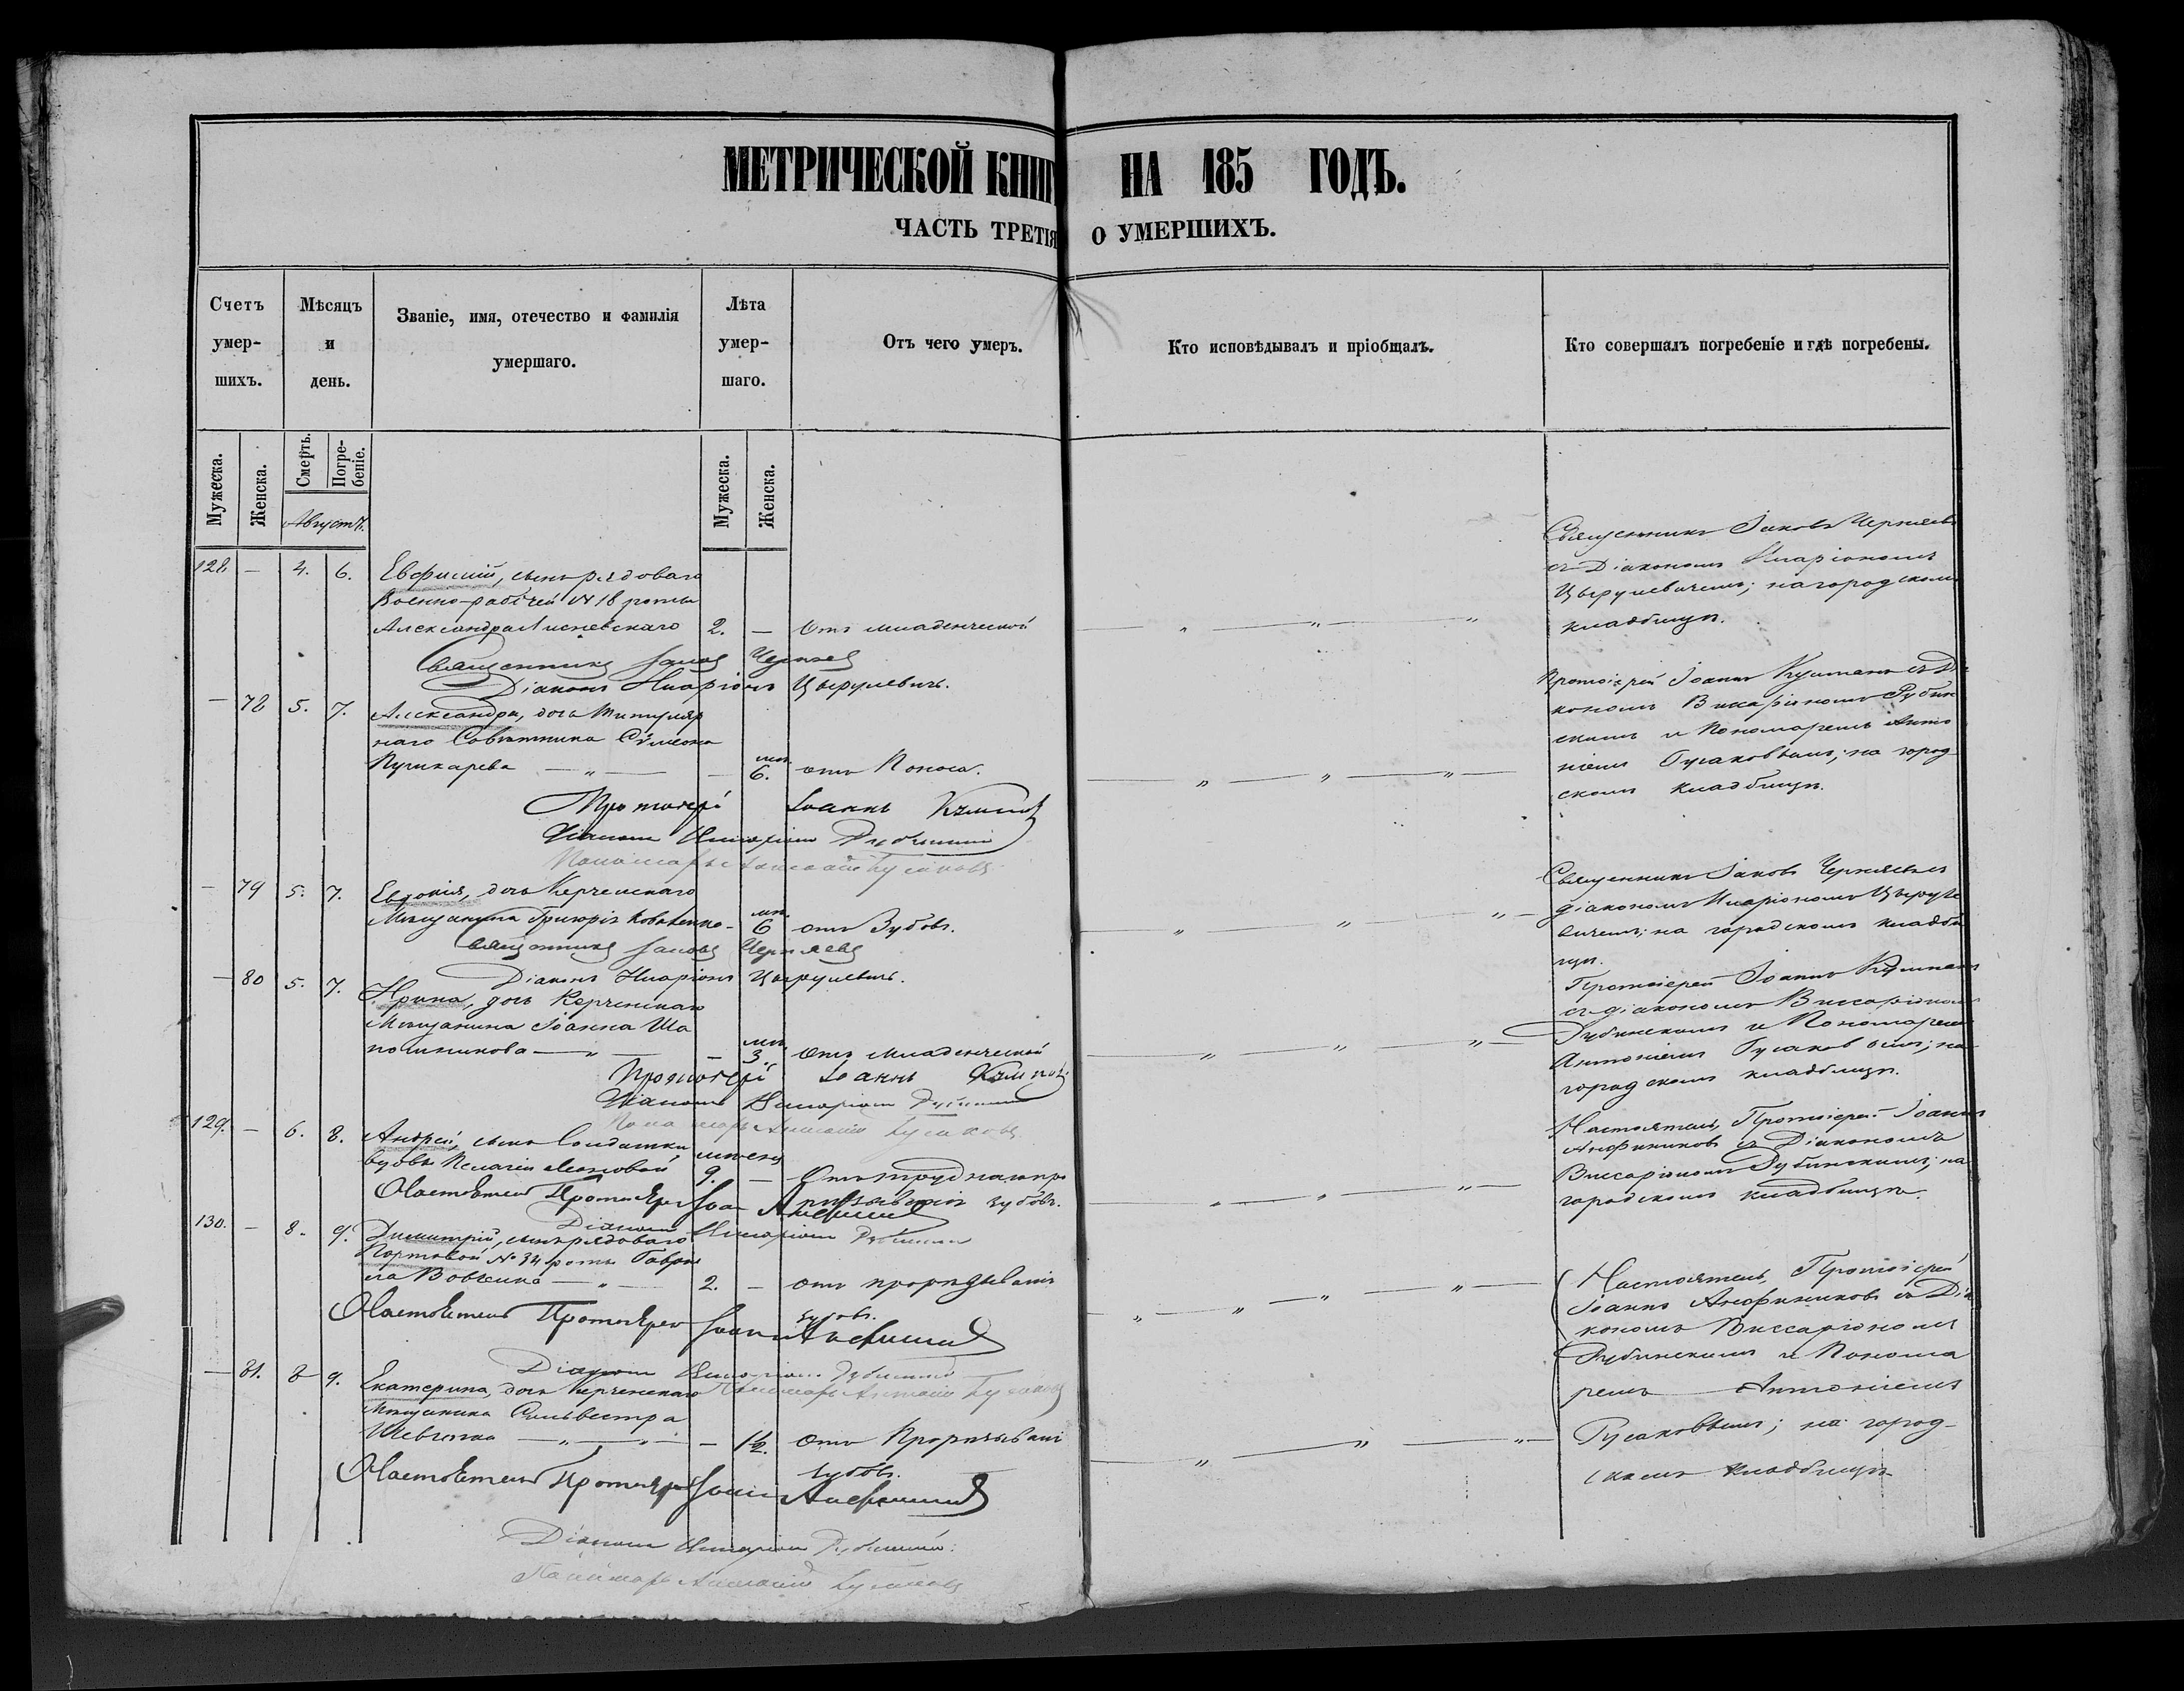 МЕТРИЧЕСКОЙ КНИГ НА 185 ГОДЪ.
ЧАСТЬ ТРЕТІЯ О УМЕРШИХЪ.
Счетъ умер-шихъ.
Мѣсяцъ и день.
Званіе, имя, отечество и фамилія умершаго.
Лѣта умер-шаго.
Отъ чего умеръ.
Кто исповѣдывалъ и пріобщалъ.
Кто совершалъ погребеніе и гдѣ погребены.
Мужеска.
Женска.
Смерть.
Погре-беніе.
Мужеска.
Женска.
Августъ.
128. — 4. 6. Евфимій, сынъ рядоваго
Военно-рабочей № 18 роты
Александра Лисневскаго 2. — Отъ младенческой
Священникъ Іаковъ Черняевъ
съ Діакономъ Иларіономъ
Цырулевичемъ; на городскомъ
кладбищѣ.
Священникъ Іаковъ Черняев
Діаконъ Иларіонъ Цырулевичъ.
— 78 5. 7. Александра, дочь Титуляр
наго Совѣтника Сѵмеона
Пушкарева — мѣ. 6. отъ Поноса.
Протоіерей Іоаннъ Кушмано съ Ді
кономъ Виссаріономъ Рубин
скимъ и Пономаремъ Анто
ніемъ Гусаковымъ; на город
скомъ кладбищѣ.
Протоіерей Іоаннъ
Діаконъ Виссаріонъ Рубинскій
Пономарь Антоній Гусаковъ
— 79 5. 7. Евдокія, дочь Керченскаго
Мѣщанина Григорія Коваленко — мѣ. 6 отъ Зубовъ.
Священникъ Іаковъ Черняевъ съ
діакономъ Иларіономъ Цыруле
вичемъ; на городскомъ кладби
щѣ.
Священникъ Іаковъ Черняевъ
Діаконъ Иларіонъ Цырулевичъ.
— 80 5. 7. Ирина, дочь Керченскаго
Мѣщанина Іоанна Ша
пошникова — мѣ. 3. Отъ младенческой
Протоіерей Іоаннъ
съ діакономъ Виссаріономъ
Рубинскимъ и Пономаремъ
Антоніемъ Гусаковымъ; на
городскомъ кладбищѣ.
Протоіерей Іоаннъ
Діаконъ Виссаріонъ Рубинскій
Пономарь Антоній Гусаковъ
129. — 6. 8. Андрей, сынъ Солдатки
вдовы Пелагіи мѣсяц 9. — Отъ труднаго про
рѣзыванія зубовъ.
Настоятель, Протоіерей Іоаннъ
Анфиниковъ съ Діакономъ
Виссаріономъ Рубинскимъ; на
городскомъ кладбищѣ.
Настоятель Протоіерей Іоан
Діаконъ Виссаріонъ Рубинскій
130. — 8. 9. Димитрій, сынъ рядоваго
Портовой № 34 роты Гаври
ла Вовченка — 2. — отъ прорѣзыванія
зубовъ.
Настоятель, Протоіерей
Іоаннъ Анфиниковъ съ Діа
кономъ Виссаріономъ
Рубинскимъ и Понома
ремъ Антоніемъ
Гусаковымъ; на город-
скомъ кладбищѣ
Настоятель Протоіерей Іоаннъ
Діаконъ Виссаріонъ Рубинскій
Пономарь Антоній Гусаковъ
— 81. 8 9. Екатерина, дочь Керченскаго
Мѣщанина Сильвестра
Шевченка — 1½. Отъ Прорѣзыванія
зубовъ.
Настоятель Протоіерей Іоаннъ
Діаконъ Виссаріонъ Рубинскій.
Пономарь Антоній Гусаковъ